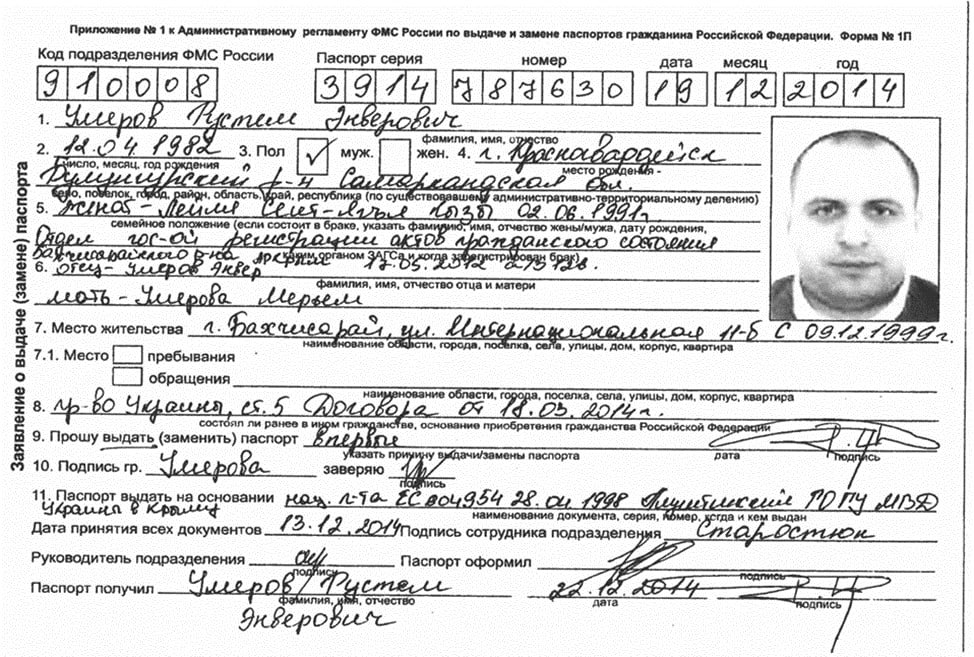 Приложение № 1 к Административному регламенту ФМС России по выдаче и замене паспортов гражданина Российской Федерации. Форма № 1П
Код подразделения ФМС России Паспорт серия номер дата месяц год
910008 3914 787630 19 12 2014
1. Умеров Рустем Энверович
фамилия, имя, отчество
2. 12.04.1982 3. Пол ✓ муж. жен. 4. г. Красногвардейск
число, месяц, год рождения место рождения -
Булунгурский р-н Самаркандская обл.
село, поселок, город, район, область, край, республика (по существовавшему административно-территориальному делению)
5. жена - Лейля Сеит- кызы 02.06.1991г.
семейное положение (если состоит в браке, указать фамилию, имя, отчество жены/мужа, дата рождения,
Отдел гос-ой регистрации актов гражданского состояния
каким органом ЗАГСа и когда зарегистрирован брак)
Бахчисарайского р-на 17.03.2012
6. отец - Умеров Энвер
фамилия, имя, отчество отца и матери
мать - Умерова Мерьем
7. Место жительства г. Бахчисарай, ул. Интернациональная 11-б с 09.12.1999г.
наименование области, города, поселка, села, улицы, дом, корпус, квартира
7.1. Место пребывания
обращения
наименование области, города, поселка, села, улицы, дом, корпус, квартира
8. гр-во Украины, ст. 5 Договора от 18.03.2014г.
состоял ли ранее в ином гражданстве, основание приобретения гражданства Российской Федерации
9. Прошу выдать (заменить) паспорт впервые
указать причину выдачи/замены паспорта дата подпись
10. Подпись гр. Умерова заверяю
подпись
11. Паспорт выдать на основании нац. п-та ЕС 804954 28.04.1998 ГУ МВД
Украины в Крыму
наименование документа, серия, номер, когда и кем выдан
Дата принятия всех документов 13.12.2014 Подпись сотрудника подразделения Старостюк
Руководитель подразделения Паспорт оформил
подпись подпись
Паспорт получил Умеров Рустем 22.12.2014
фамилия, имя, отчество дата подпись
Энверович
Заявление о выдаче (замене) паспорта